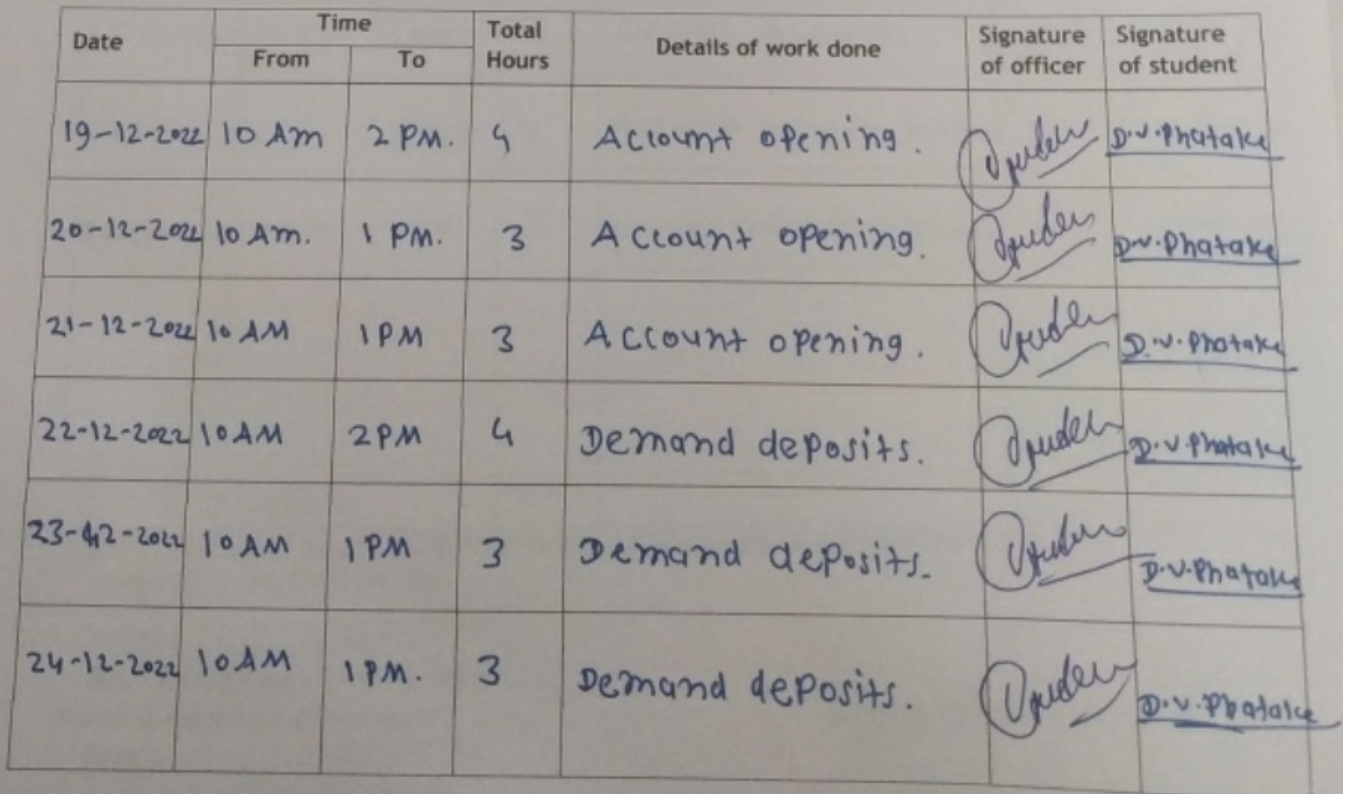 Date Time Total Hours Details of work done Signature of officer Signature of student
From To
19-12-2022 10 AM 2 PM. 4 Account opening. D.V.Phatake
20-12-2022 10 Am. 1 PM. 3 Account opening. D.V.Phatake
21-12-2022 10 AM 1PM 3 Account opening. D.V.Phatake
22-12-2022 10AM 2PM 4 Demand deposits. D.V.Phatake
23-12-2022 10AM 1PM 3 Demand deposits. D.V.Phatake
24-12-2022 10AM 1PM. 3 Demand deposits. D.V.Phatake